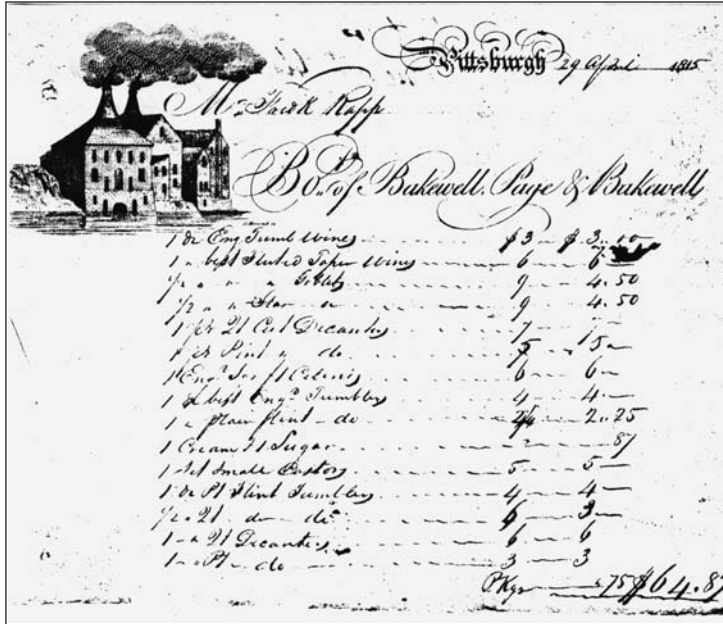 Pittsburgh 29 April 1815
Mr Rapp
Bot of Bakewell, Page & Bakewell
1 Dz Eng Tumb Wines $3 $3.
1 " best Fluted Taper Wines 6 6
1/2 " " " Goblets 9 4.50
1/2 " " Star " 9 4.50
1 pr Qt Cut Decanters 7
1 pr Pint " do 5 5
1 Engd 6 6
1 " best Engd Tumblers 4 4
1 " plain flint do 2.25
1 Cream & Sugar 87
1 Set Small Castors 5 5
1 Dz Pt Flint Tumblers 4 4
1/2 " Qt do do 6 3
1 " Qt Decanters 6 6
1 " Pt do 3 3
Pkgs 75 $64.87